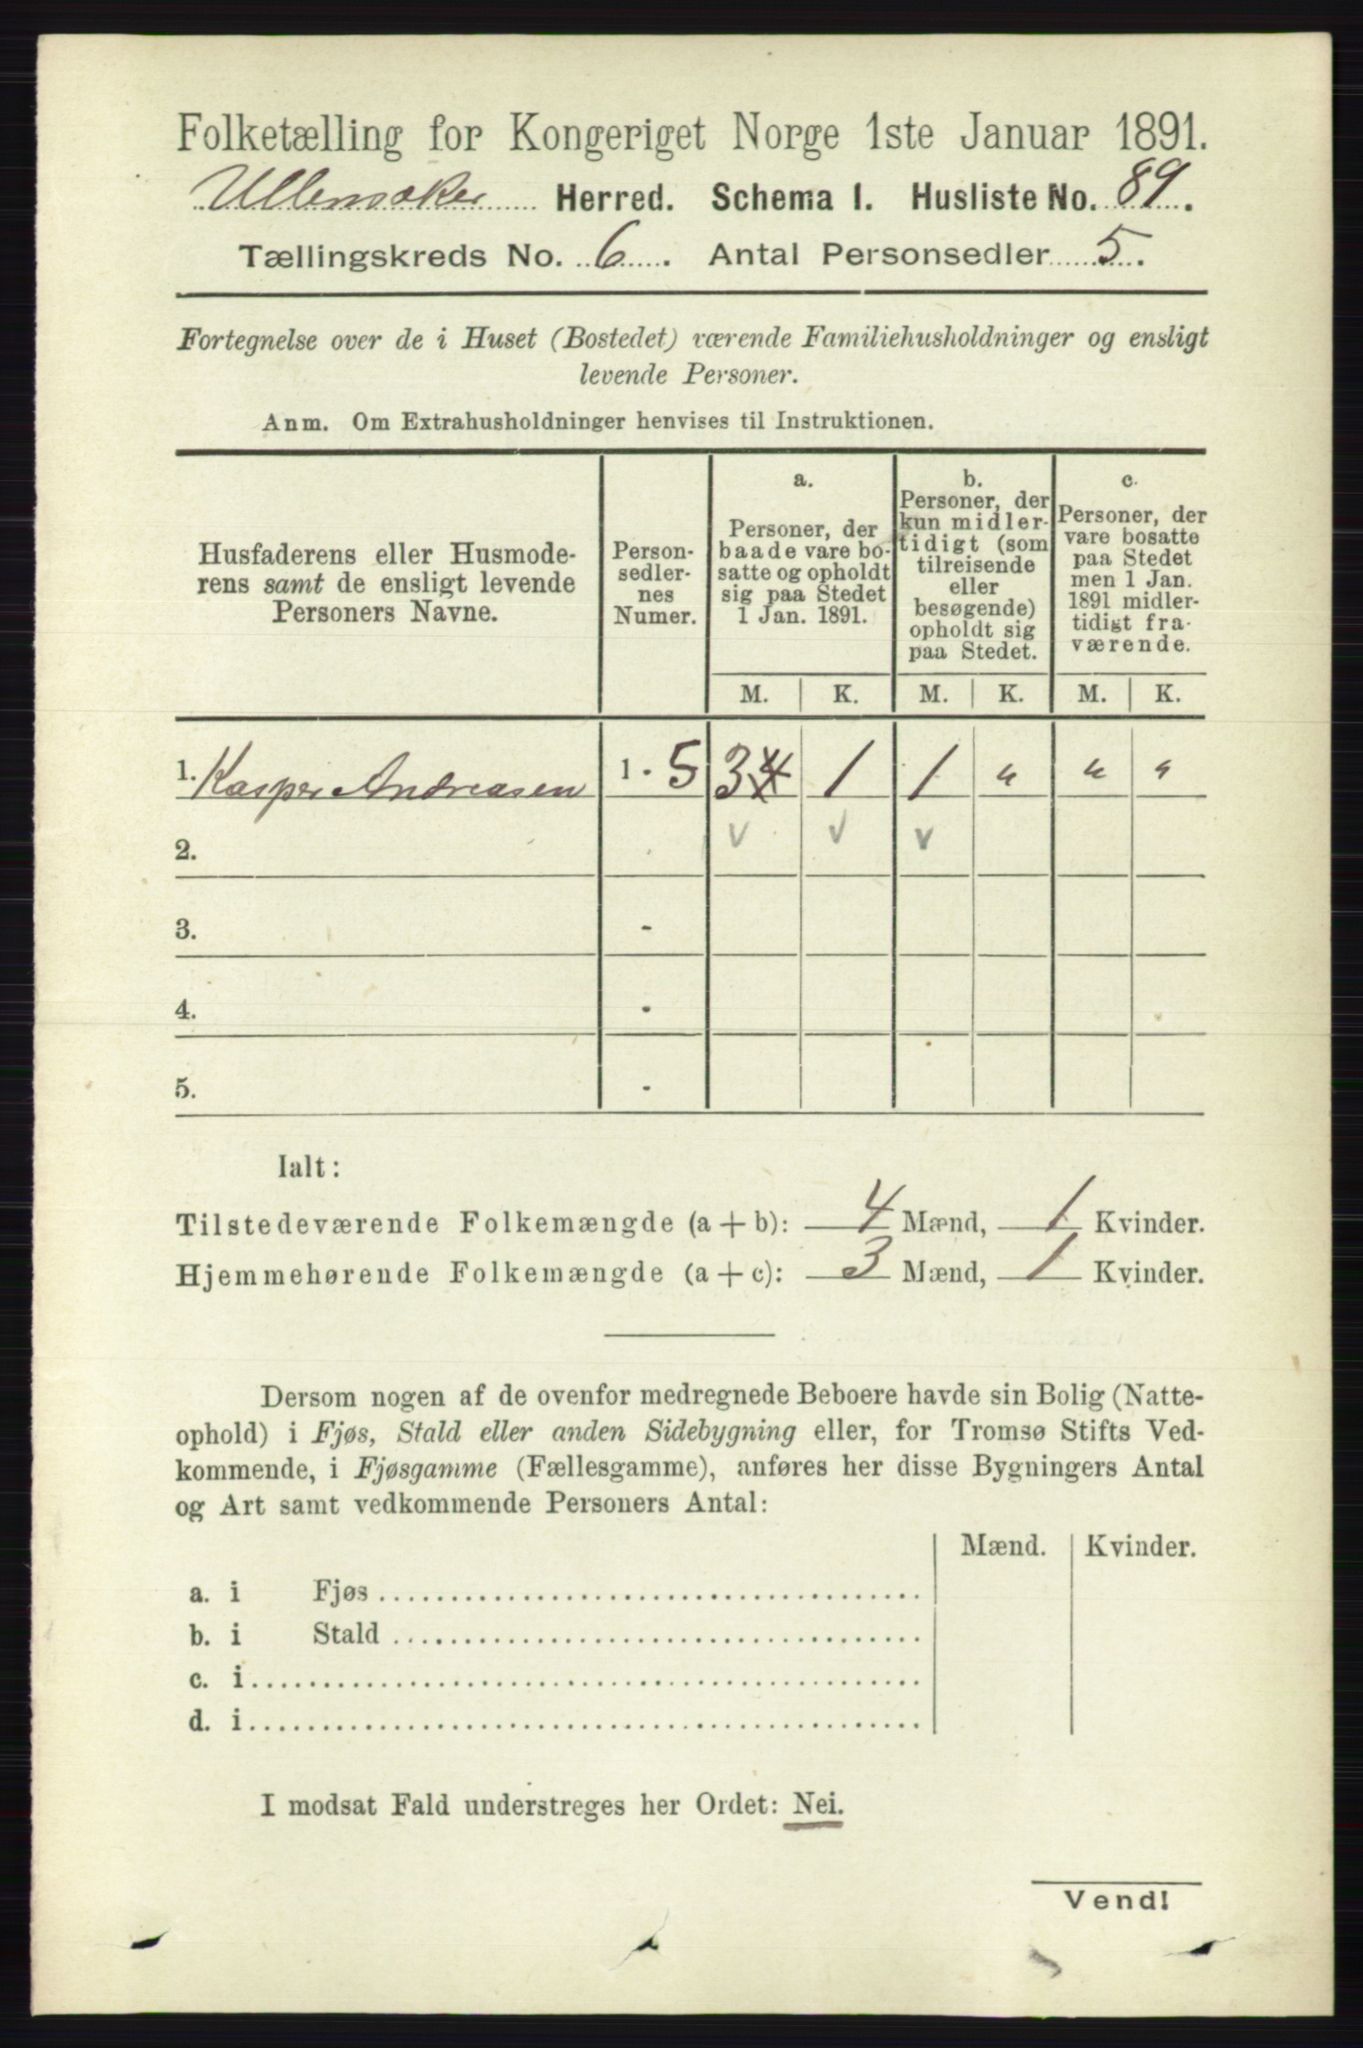 Folketælling for Kongeriget Norge 1ste Januar 1891.
Ullensaker Herred. Schema I. Husliste No. 89.
Tællingskreds No. 6. Antal Personsedler 5.
Fortegnelse over de i Huset (Bostedet) værende Familiehusholdninger og ensligt
levende Personer.
Anm. Om Extrahusholdninger henvises til Instruktionen.
Husfaderens eller Husmode-
rens samt de ensligt levende
Personers Navne.
Person-
sedler-
nes
Numer.
a.
Personer, der
baade vare bo-
satte og opholdt
sig paa Stedet
1 Jan. 1891.
b.
Personer, der
kun midler-
tidigt (som
tilreisende
eller
besøgende)
opholdt sig
paa Stedet.
c.
Personer, der
vare bosatte
paa Stedet
men 1 Jan.
1891 midler-
tidigt fra-
værende.
M. K. M. K. M. K.
1. Kasper Andreasen 1 - 5 3 4 1 1 " " "
2. v v v
3. -
4. -
5. -
Ialt:
Tilstedeværende Folkemængde (a + b): 4 Mænd, 1 Kvinder.
Hjemmehørende Folkemængde (a + c): 3 Mænd, 1 Kvinder.
Dersom nogen af de ovenfor medregnede Beboere havde sin Bolig (Natte-
ophold) i Fjøs, Stald eller anden Sidebygning eller, for Tromsø Stifts Ved-
kommende, i Fjøsgamme (Fællesgamme), anføres her disse Bygningers Antal
og Art samt vedkommende Personers Antal:
Mænd. Kvinder.
a. i Fjøs
b. i Stald
c. i
d. i
I modsat Fald understreges her Ordet: Nei.
Vend!